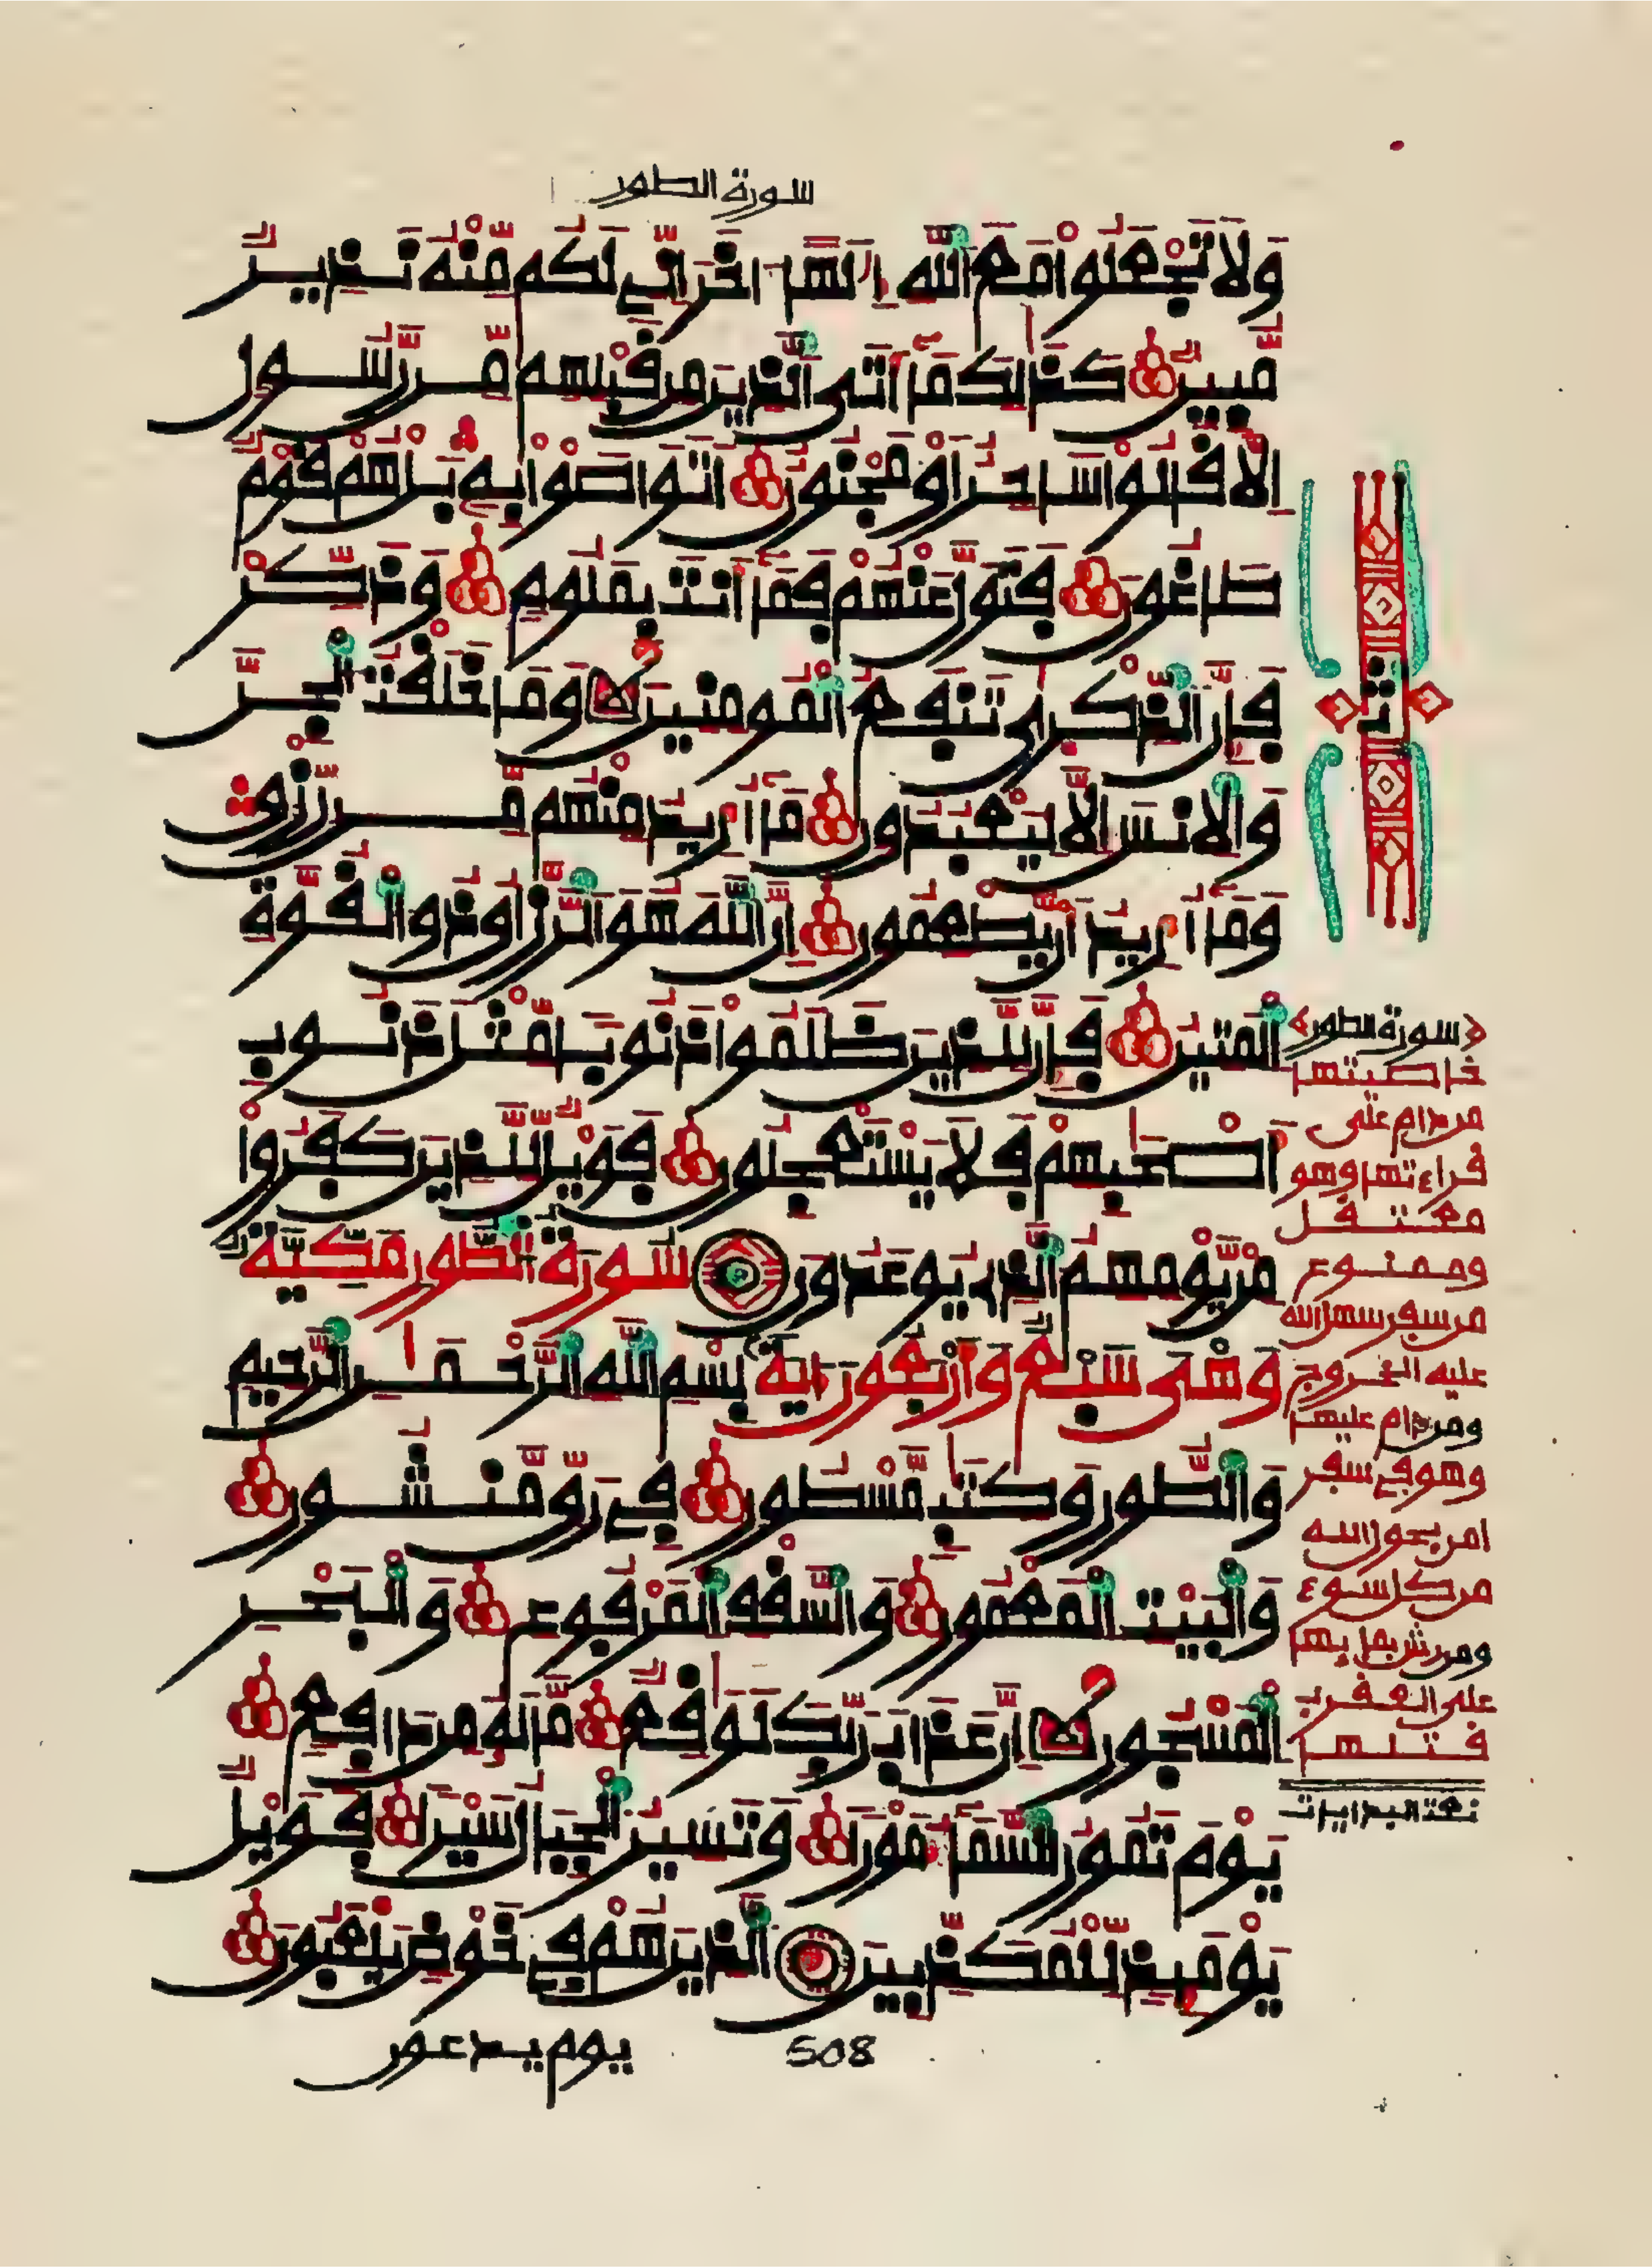 سورة الطور
وَلَا تَجْعَلُوا مَعَ اللَّهِ إِلَٰهًا آخَرَ إِنِّي لَكُم مِّنْهُ نَذِيرٌ
مُّبِينٌ كَذَٰلِكَ مَا أَتَى الَّذِينَ مِن قَبْلِهِم مِّن رَّسُولٍ
إِلَّا قَالُوا سَاحِرٌ أَوْ مَجْنُونٌ أَتَوَاصَوْا بِهِ بَلْ هُمْ قَوْمٌ
طَاغُونَ فَتَوَلَّ عَنْهُمْ فَمَا أَنتَ بِمَلُومٍ وَذَكِّرْ
فَإِنَّ الذِّكْرَىٰ تَنفَعُ الْمُومِنِينَ وَمَا خَلَقْتُ الْجِنَّ
وَالْإِنسَ إِلَّا لِيَعْبُدُونِ مَا أُرِيدُ مِنْهُم مِّن رِّزْقٍ
وَمَا أُرِيدُ أَن يُطْعِمُونِ إِنَّ اللَّهَ هُوَ الرَّزَّاقُ ذُو الْقُوَّةِ
الْمَتِينُ فَإِنَّ لِلَّذِينَ ظَلَمُوا ذَنُوبًا مِّثْلَ ذَنُوبِ
أَصْحَٰبِهِمْ فَلَا يَسْتَعْجِلُونِ فَوَيْلٌ لِّلَّذِينَ كَفَرُوا
مِن يَوْمِهِمُ الَّذِي يُوعَدُونَ سُورَةُ الطُّورِ مَكِّيَّةٌ
وَهْيَ سَبْعٌ وَأَرْبَعُونَ ءَايَةً بِسْمِ اللَّهِ الرَّحْمَٰنِ الرَّحِيمِ
وَالطُّورِ وَكِتَٰبٍ مَّسْطُورٍ فِي رَقٍّ مَّنشُورٍ
وَالْبَيْتِ الْمَعْمُورِ وَالسَّقْفِ الْمَرْفُوعِ وَالْبَحْرِ
الْمَسْجُورِ إِنَّ عَذَابَ رَبِّكَ لَوَٰقِعٌ مَّا لَهُ مِن دَافِعٍ
يَوْمَ تَمُورُ السَّمَاءُ مَوْرًا وَتَسِيرُ الْجِبَالُ سَيْرًا فَوَيْلٌ
يَوْمَئِذٍ لِّلْمُكَذِّبِينَ الَّذِينَ هُمْ فِي خَوْضٍ يَلْعَبُونَ
يوم يدعون
508
ثمن
﴿سورة الطور﴾
خاصيتها
من دام على
قراءتها وهو
معتقل
وممنوع
من سفر سهل الله
عليه الخروج
ومن دام عليها
وهو في سفر
امن بحول الله
من كل سوء
ومن رش بمايها
على العقرب
قتلها